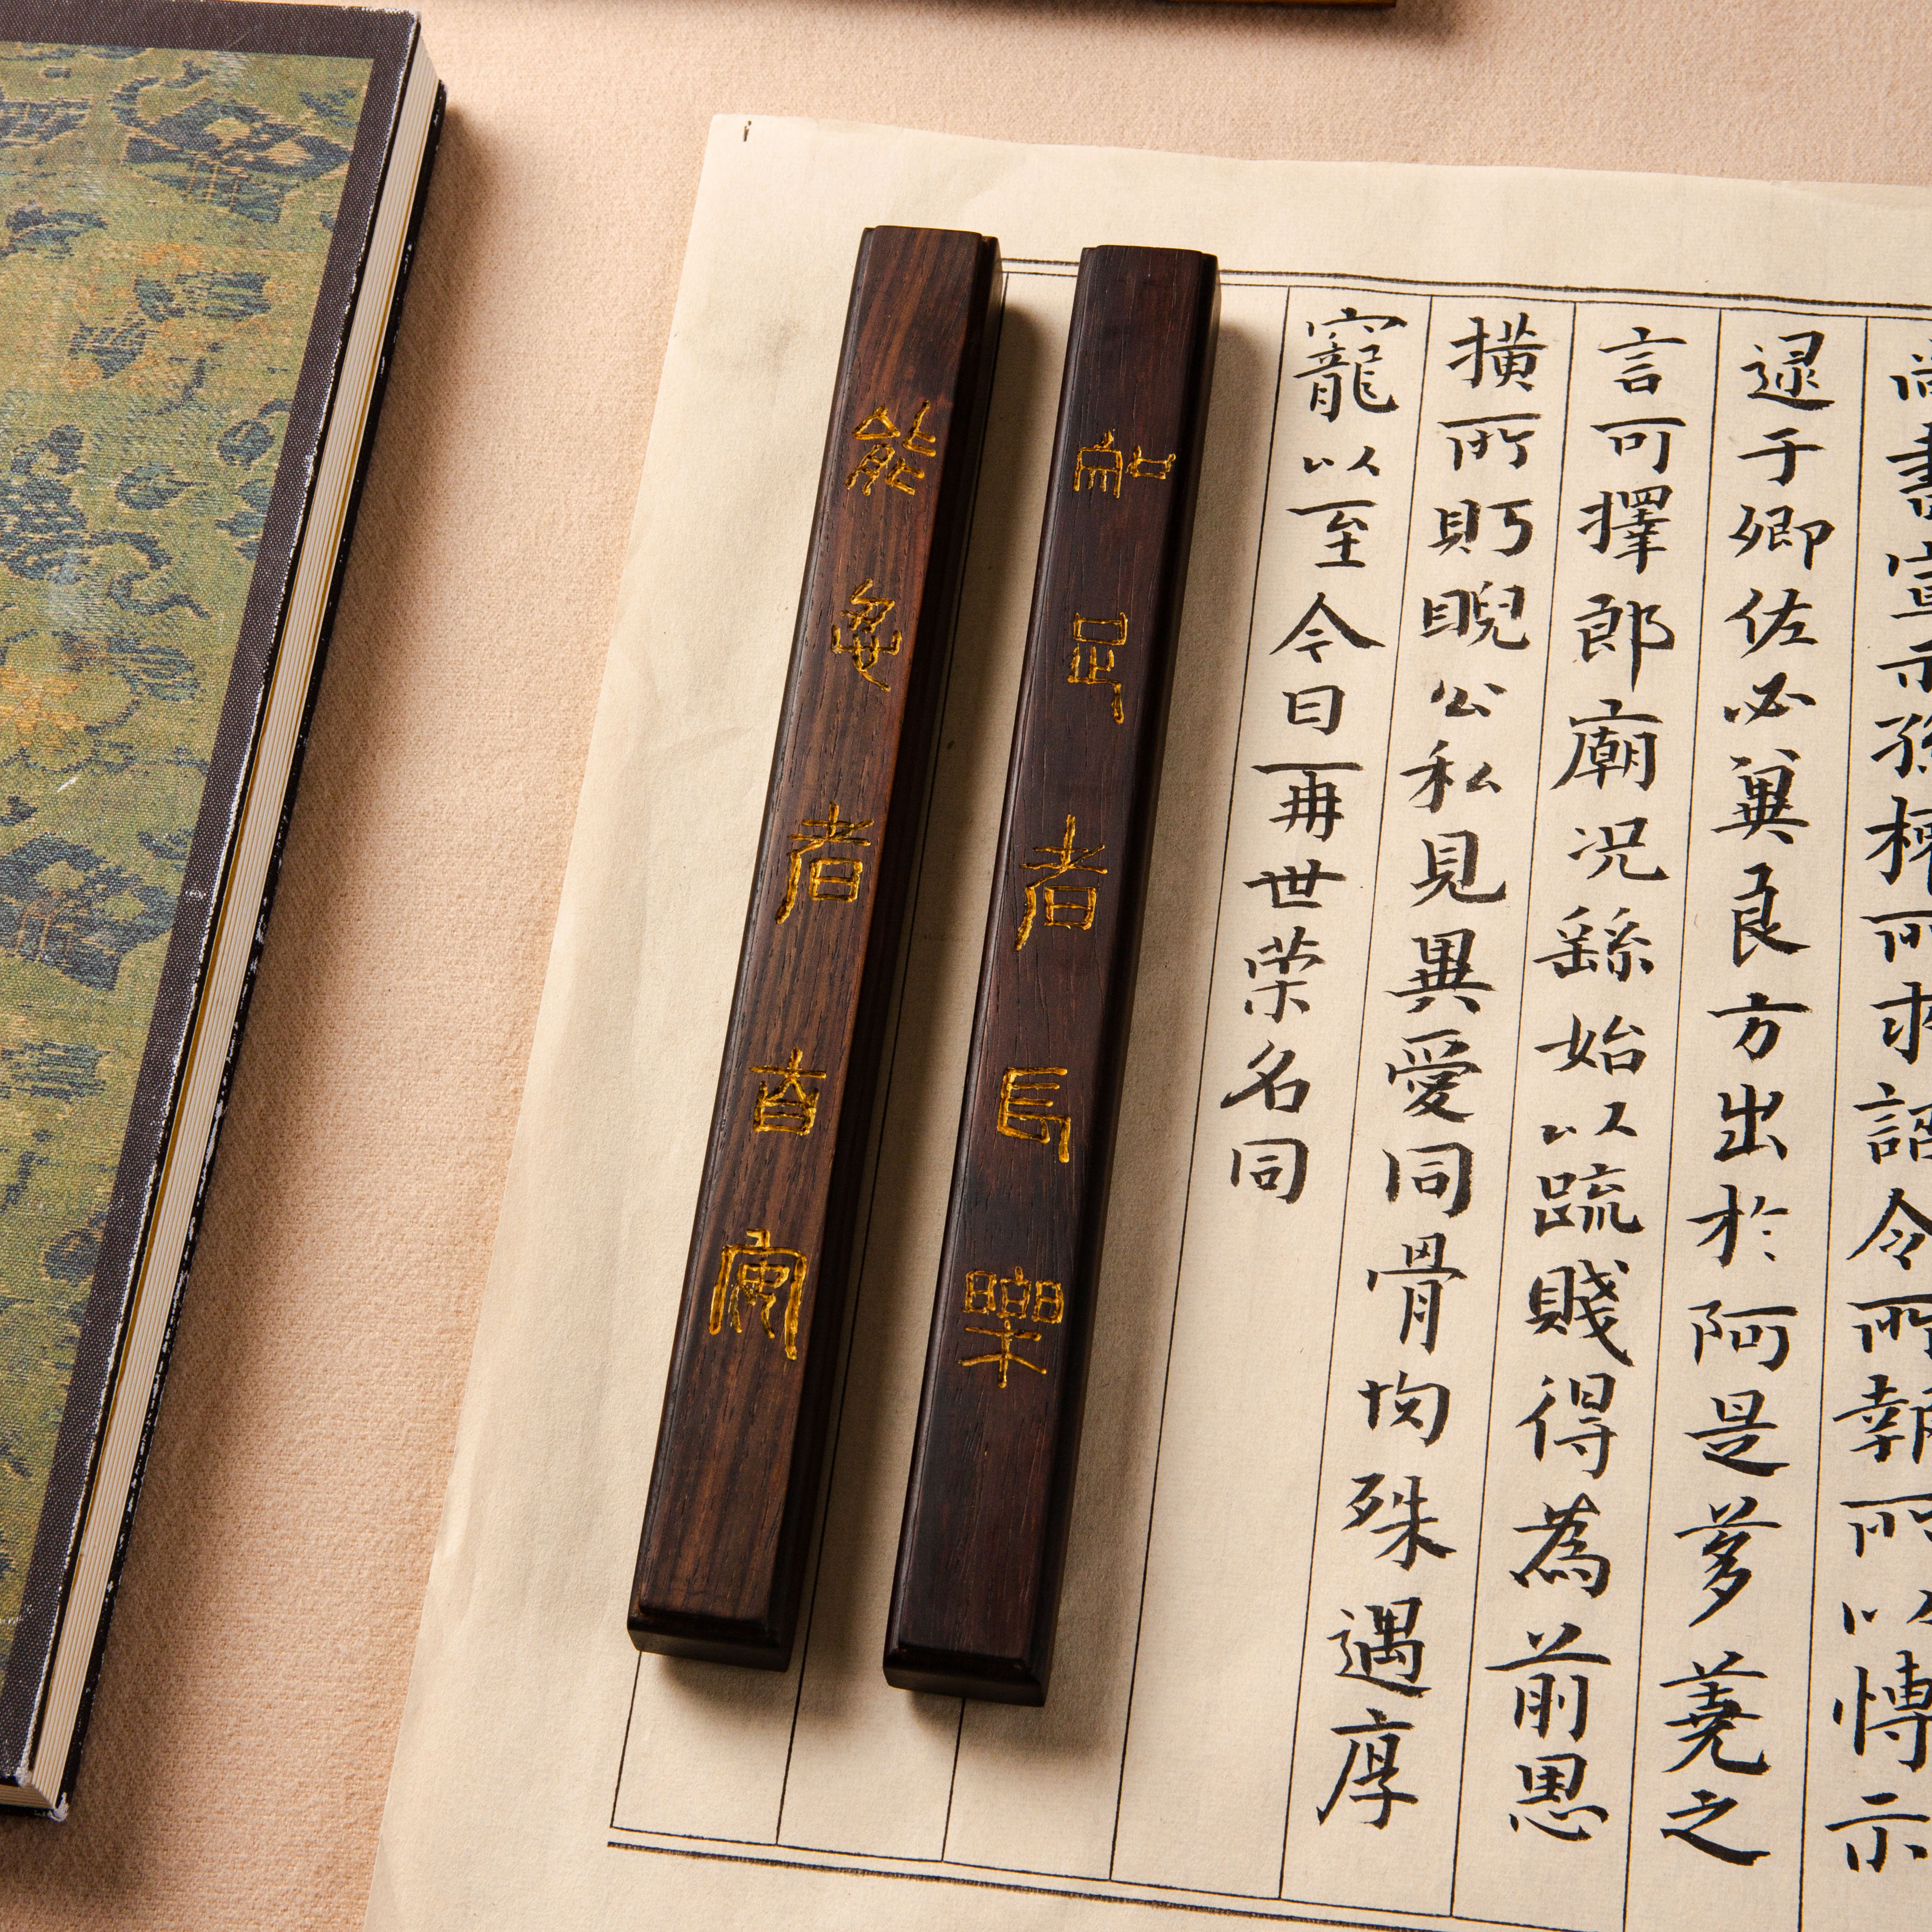 尚書宣示孫權所求詔令所報所以博示
逮于卿佐必冀良方出於阿是芻蕘之
言可擇郎廟況繇始以疏賤得為前恩
橫所眄睨公私見異愛同骨肉殊遇厚
寵以至今日再世荣名同
知足者長樂
能忍者自安